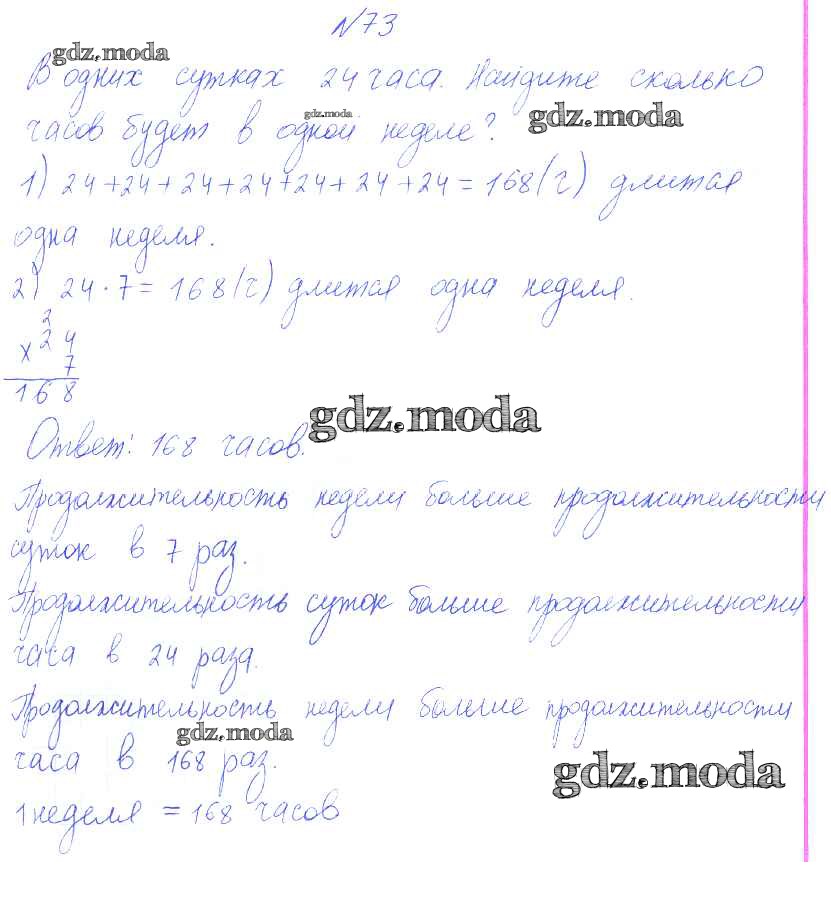 N73
gdz.moda
В одних сутках 24 часа. Найдите сколько
gdz.moda
часов будет в одной неделе?
gdz.moda
1) 24+24+24+24+24+24+24=168(ч) длится
одна неделя.
2) 24·7=168(ч) длится одна неделя.
2
× 24
7
168
gdz.moda
Ответ: 168 часов.
Продолжительность недели больше продолжительности
суток в 7 раз.
Продолжительность суток больше продолжительности
часа в 24 раза.
Продолжительность недели больше продолжительности
gdz.moda
часа в 168 раз.
gdz.moda
1 неделя = 168 часов